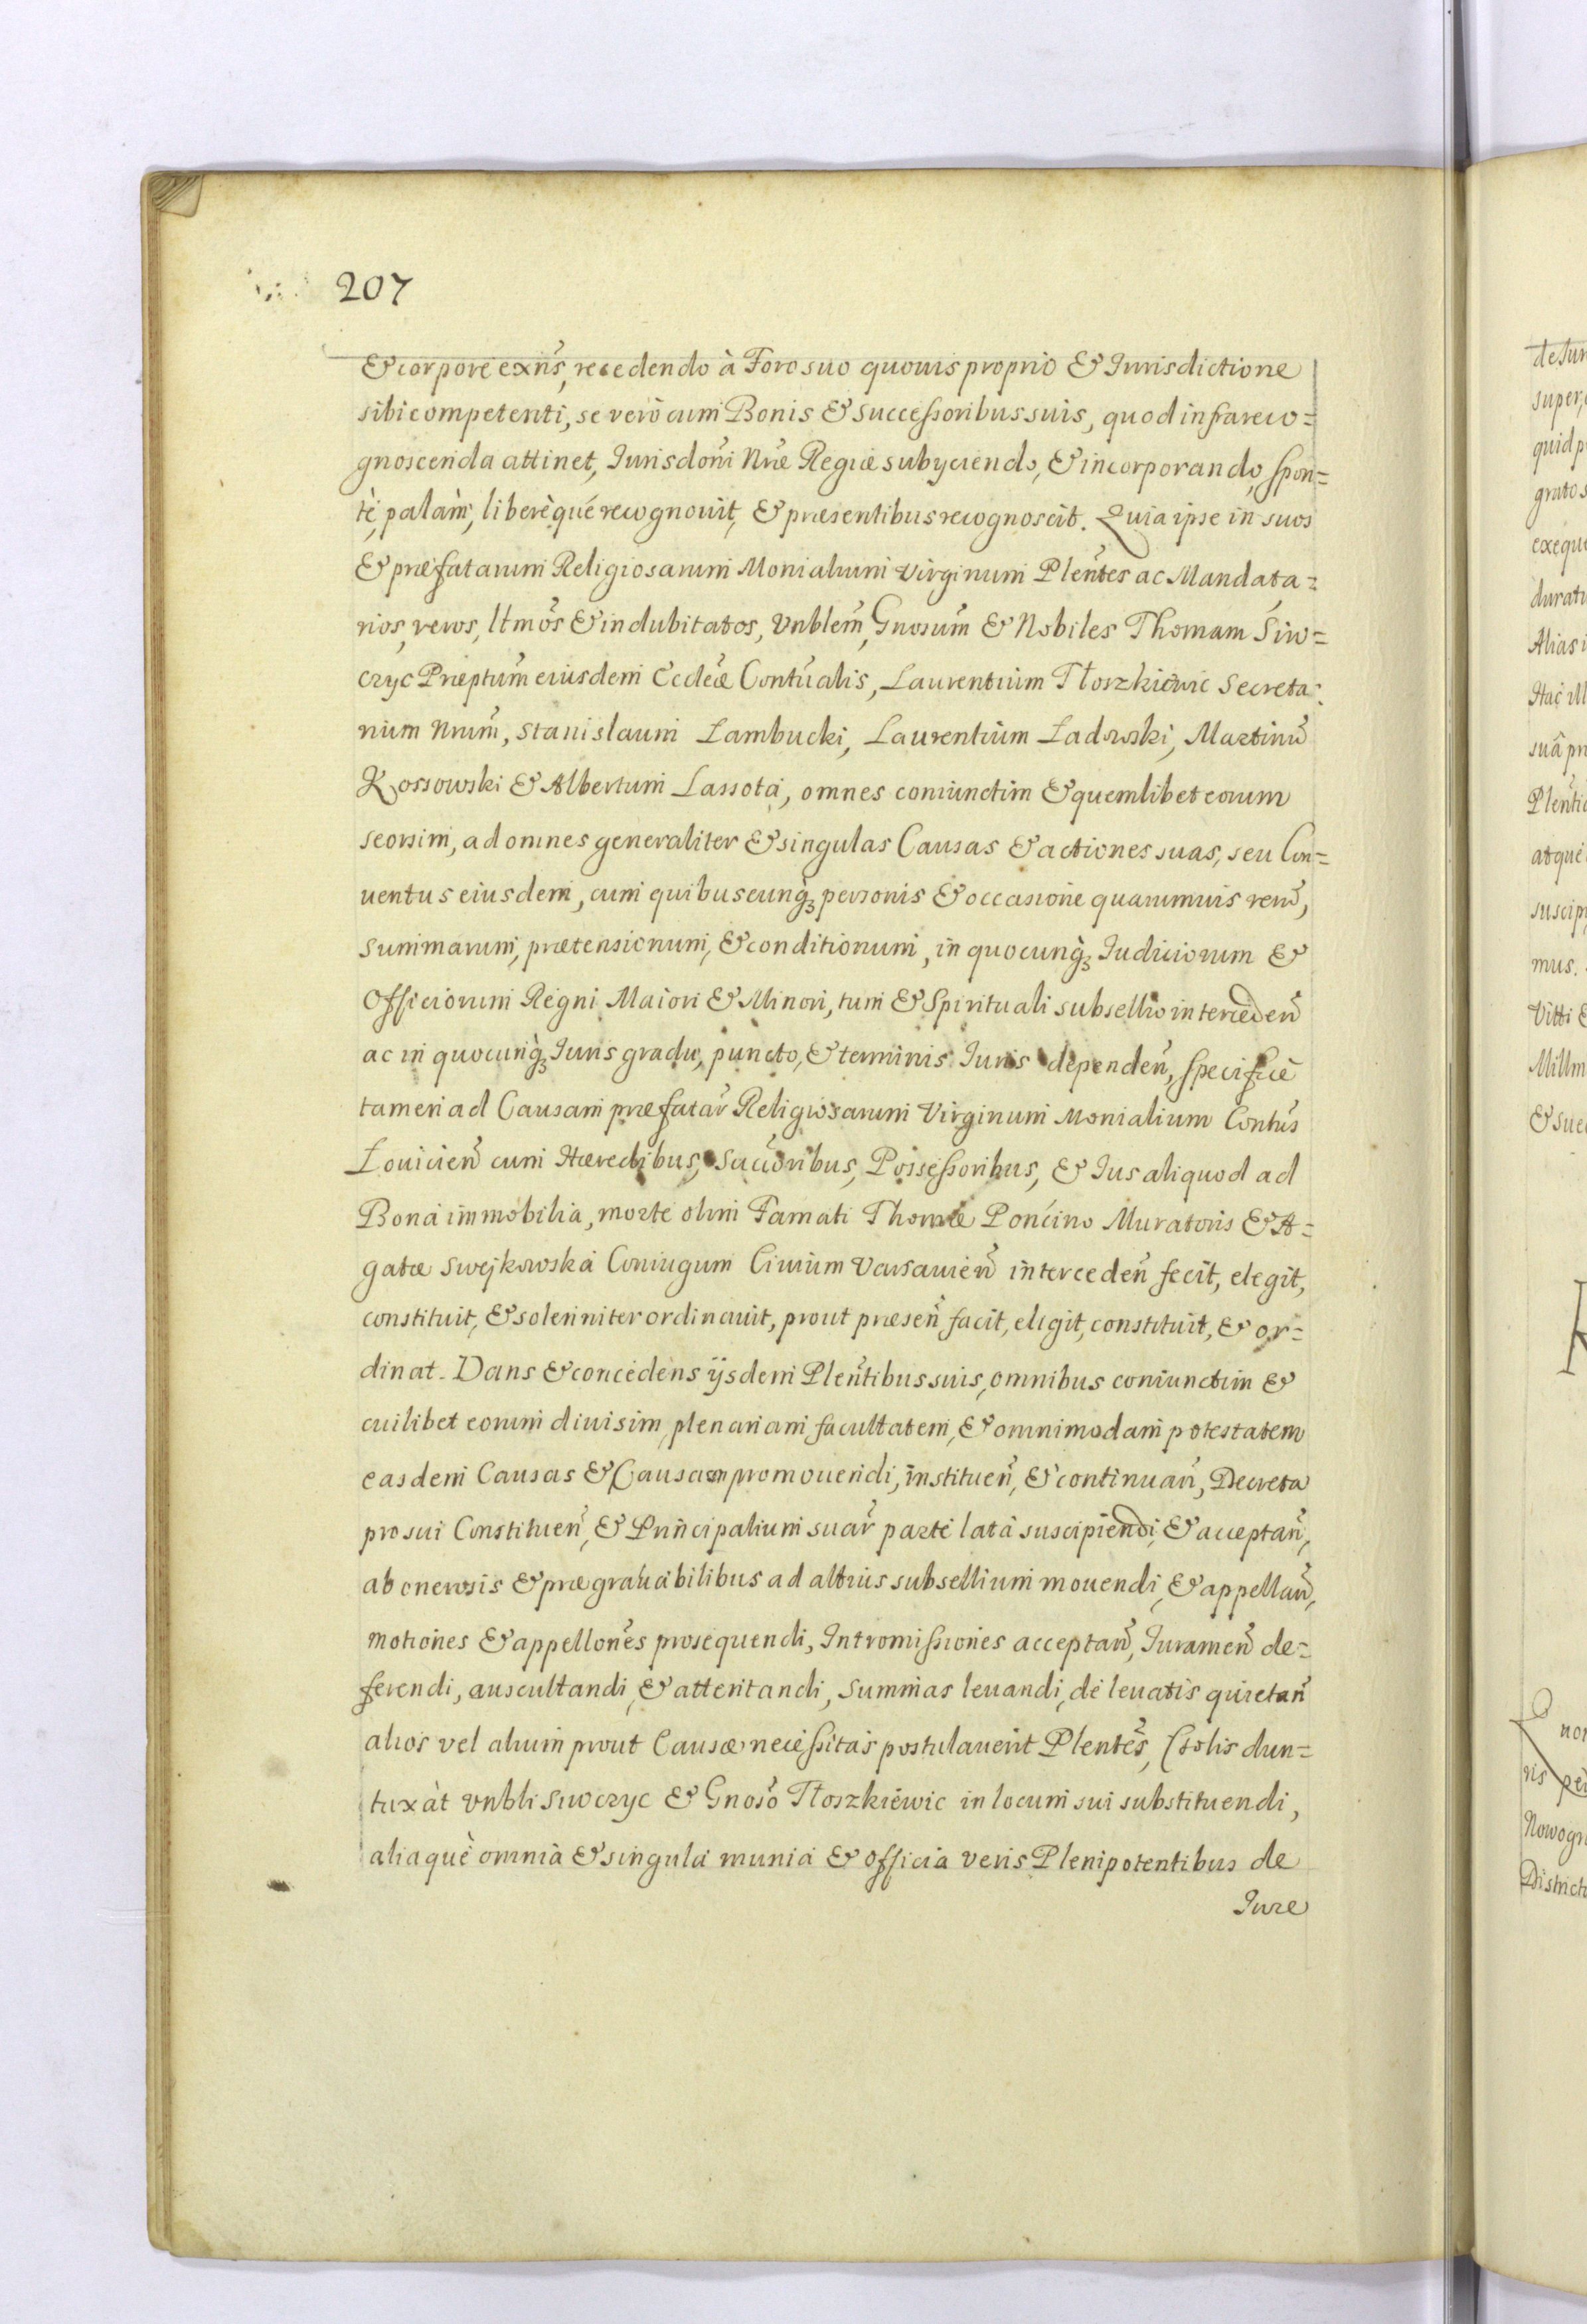 207
& corpore exñs, recedendo à Foro suo quouis proprio & Iurisdictione
sibi competenti, se verò cum Bonis & Successoribus suis, quod infra reco=
gnoscenda attinet, Iurisdoñi Nrãe Regiæ subyciendo, & incorporando, spon=
tè, palàm, liberèqué recognouit, & præsentibus recognoscit. Quia ipse in suos
& præfatarum Religiosarum Monialium Virginum Pleñtes ac Mandata=
rios, veros, ltmõs & indubitatos, Vnblem̃, Gnosum̃ & Nobiles Thomam Siw=
czyc Præptum̃ eiusdem Eccleæ̃ Contũalis, Laurentium Tłoszkiewic Secreta=
rium Nrum̃, Stanislaum Łambucki, Laurentium Ładowski, Martinũ
Kossowski & Albertum Lassota, omnes coniunctim & quemlibet eorum
seorsim, ad omnes generaliter & singulas Causas & actiones suas, seu Con=
uentus eiusdem, cum quibuscunq̃ personis & occasione quarumuis rerũ,
Summarum, prætensionum, & conditionum, in quocunq̃ Iudiciorum &
Officiorum Regni Maiori & Minori, tum & Spirituali subsellio intercedeñ
ac in quocunq̃ Iuris gradu, puncto, & terminis Iuris dependeñ, specificè
tamen ad Causam præfatar̃ Religiosarum Virginum Monialium Contũs
Łouicieñ cum Hæredibus, Succ̃oribus, Possessoribus, & Ius aliquod ad
Bona immobilia, morte olim Famati Thomæ Poncino Muratoris & A=
gatæ Swejkowska Coniugum Ciuium Varsauieñ intercedeñ fecit, elegit,
constituit, & solenniter ordinauit, prout præseñ facit, eligit, constituit, & or=
dinat. Dans & concedens ijsdem Pleñtibus suis, omnibus coniunctim &
cuilibet eorum diuisim, plenariam facultatem, & omnimodam potestatem
easdem Causas & Causam promouendi, institueñ, & continuañ, Decreta
pro sui Constitueñ, & Principalium suar̃ parte lata suscipiendi, & acceptañ,
ab onerosis & prægrauabilibus ad altius subsellium mouendi, & appellañ,
motiones & appelloñes prosequendi, Intromissiones acceptañ, Iurameñ de=
ferendi, auscultandi, & attentandi, Summas leuandi, de leuatis quietañ
alios vel alium prout Causæ necessitas postulauerit Pleñtes, (solis dun=
taxàt Vnbli Siwczyc & Gnosõ Tłoszkiewic in locum sui substituendi,
aliaquè omnia & singula munia & officia veris Plenipotentibus de
Iure